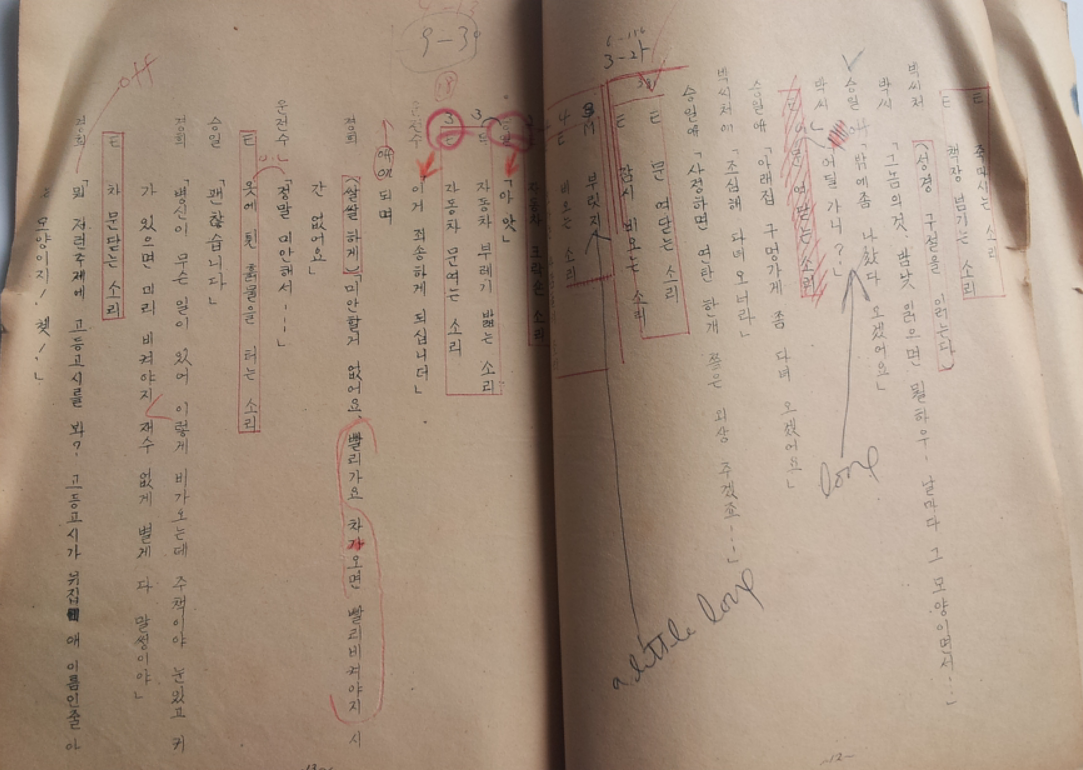 E 죽마시는 소리
E 책장 넘기는 소리
박씨처 (성경 구절을 읽는다)
박씨 「그놈의것. 밤낮 읽으면 뭘하우- 날마다 그 모양이면서...」
승일 「밖에좀 나갔다 오겠어요」
박씨 「어딜 가니?」
E 어문 여닫는 소리
승일애 「아래집 구멍가게 좀 다녀 오겠어요」
박씨처애 「조심해 다녀 오너라」
승일애 「사정하면 연탄 한개 쯤은 외상 주겠죠...」
E 문 여닫는 소리
E 잠시 비오는 소리
M 부릿지
E 비오는 소리
long
a little long
6-116
3-21
-12-
9-39
자동차 크락숀 소리
「아 앗」
E 자동차 부레기 밟는 소리
E 자동차 문여는 소리
운전수 이거 죄송하게 되십니더」
되며
경희 (쌀쌀하게) 미안할거 없어요. 빨리가요 차가오면 빨리비켜야지 시
간 없어요」
운전수 「정말 미안해서...」
E 옷에 튄 흙물을 터는 소리
승일 「괜찮습니다」
경희 「병신이 무슨 일이 있어 이렇게 비가오는데 주책이야 눈있고 귀
가 있으면 미리 비켜야지 재수 없게 별게 다 말썽이야」
E 차 문닫는 소리
경희 「뭐 저런주제에 고등고시를 봐? 고등고시가 뉘집 애 이름인줄 아
모양이지! 쳇!」
off
-13-